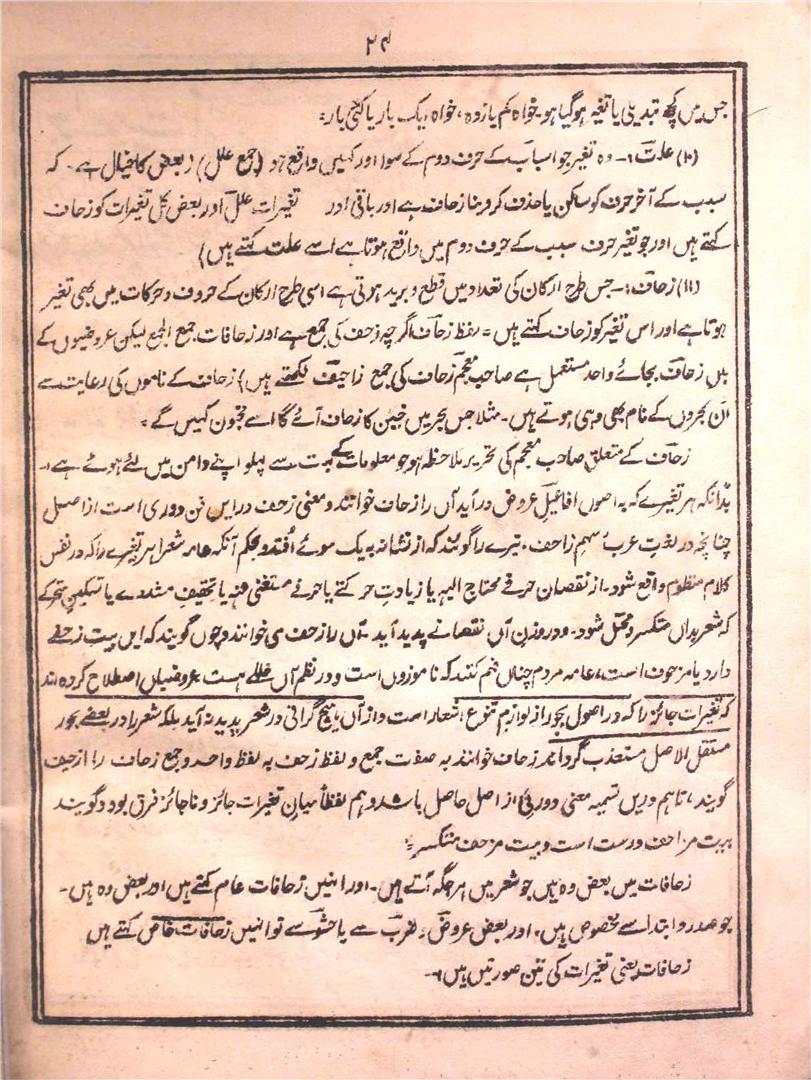 ۲۴
جس میں کچھ تبدیلی یا تغیر ہو گیا ہو۔ خواہ کم یا زوہ، خواہ ایک بار یا کئی بار؛
(۱۰) علت:۔ وہ تغیر جو اسباب کے حرف دوم کے سوا اور کہیں واقع ہو (جمع علل) (بعض کا خیال ہے۔ کہ
سبب کے آخر حرف کو ساکن یا حذف کر دینا زحاف ہے اور باقی اور تغیرات علل اور بعض کل تغیرات کو زحاف
کہتے ہیں اور جو تغیر حرف سبب کے حرف دوم میں واقع ہوتا ہے اسے علت کہتے ہیں)
(۱۱) زحاف:۔ جس طرح ارکان کی تعداد میں قطع و برید ہوتی ہے اسی طرح ارکان کے حروف و حرکات میں بھی تغیر
ہوتا ہے اور اس تغیر کو زحاف کہتے ہیں = لفظ زحاف اگرچہ زحف کی جمع ہے اور زحافات جمع الجمع لیکن عروضیوں کے
ہاں زحاف بجائے واحد مستعمل ہے صاحب معجم زحاف کی جمع زاحیف لکھتے ہیں) زحاف کے ناموں کی رعایت سے
ان بحروں کے نام بھی وہی ہوتے ہیں۔ مثلاً جس بحر میں خبن کا زحاف آئے گا اسے مخبون کہیں گے =
زحاف کے متعلق صاحب معجم کی تحریر ملاحظہ ہو جو معلومات کے بہت سے پہلو اپنے دامن میں لئے ہوئے ہے:۔
بدانکہ ہر تغیرے کہ بہ اصول افاعیل عروض در آید آں را زحاف خوانند و معنی زحف دریں فن دوری است از اصل
چنانچہ در لغت عرب سہم زاحف۔ تیرے را گویند کہ از نشانہ بہ یک سوئے اُفتد و بحکم آنکہ عامہ شعرا ہر تغیرے را کہ در نفس
کلام منظوم واقع شود۔ از نقصان حرفے محتاج الیہ یا زیادت حرکتے یا حرفے مستغنی عنہ یا تخفیف مشددے یا تسکین متحرکے
کہ شعر بداں منکسر و مختل شود۔ و در وزن آں نقصانے پدید آید۔ آں را زحف می خوانند و چوں گویند کہ ایں بیت زحفے
دارد یا مزحوف است، عامہ مردم چناں فہم کنند کہ ناموزوں است و در نظم آں خللے ہست عروضیاں اصطلاح کردہ اند
کہ تغیرات جائز را کہ در اصول بحور از لوازم تنوع اشعار است و از آں ہیچ گرانی در شعر پدید نہ آید بلکہ شعر را در بعضے بحور
مستقل الاصل مستعذب گرداند زحاف خوانند بہ صفت جمع و لفظ زحف بہ لفظ واحد و جمع زحاف را ازاحیف
گویند، تا ہم دریں تسمیہ معنی دوری از اصل حاصل باشد و ہم لفظاً میان تغیرات جائز و ناجائز فرق بود و گویند
بیت مزاحف درست است و بیت مزحف منکسر؛
زحافات میں بعض وہ ہیں جو شعر میں ہر جگہ آتے ہیں۔ اور انہیں زحافات عام کہتے ہیں اور بعض وہ ہیں۔
جو صدر و ابتدا سے مخصوص ہیں، اور بعض عروض و ضرب سے یا حشو سے تو انہیں زحافات خاص کہتے ہیں
زحافات یعنی تغیرات کی تین صورتیں ہیں:۔